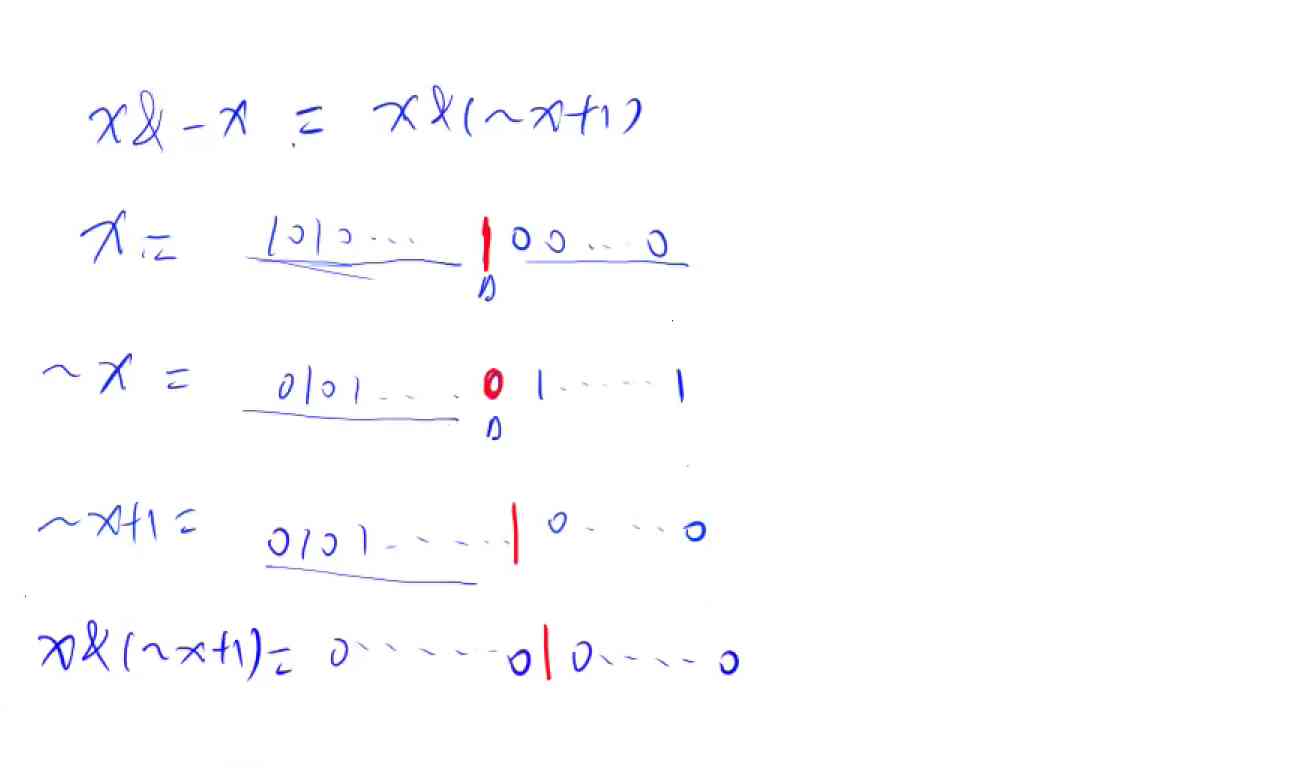 x&-x = x&(~x+1)
x= 1010... 100...0
~x = 0101.... 01.....1
~x+1= 0101......10....0
x&(~x+1)= 0......010....0